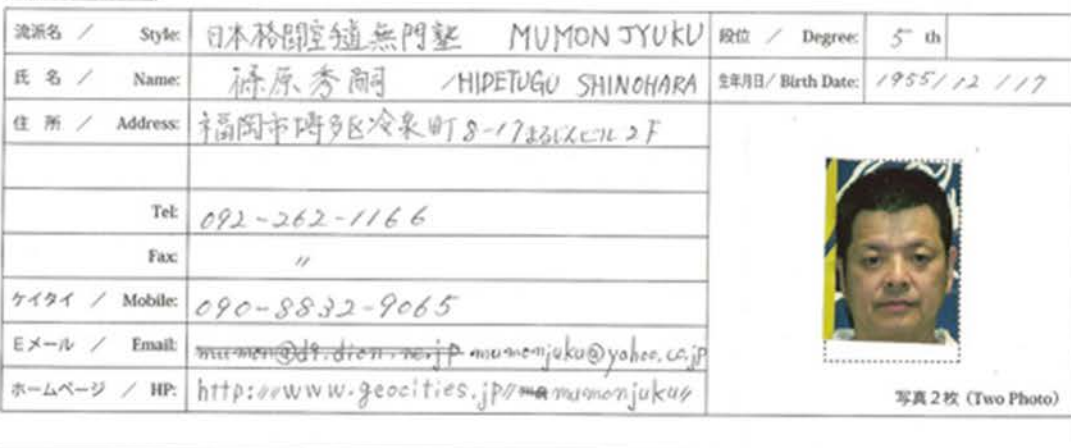 流派名 / Style: 日本格闘空手道無門塾 MUMON JYUKU 段位 / Degree: 5 th
氏 名 / Name: 篠原秀嗣 /HIDETUGU SHINOHARA 生年月日/ Birth Date: 1955/12/17
住 所 / Address: 福岡市博多区冷泉町8-17まるじんビル2F
Tel: 092-262-1166
Fax: 〃
ケイタイ / Mobile: 090-8832-9065
Eメール / Email: mumon@d9.dion.ne.jp mumonjuku@yahoo.co.jp
ホームページ / HP: http://www.geocities.jp//mumonjuku//
写真2枚 (Two Photo)